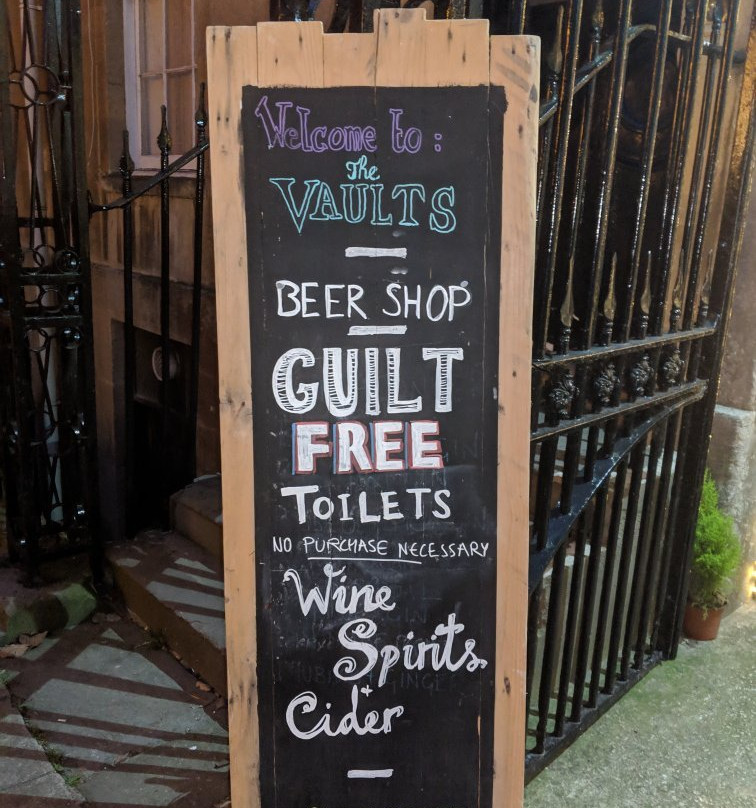 Welcome to :
The
VAULTS
BEER SHOP
GUILT
FREE
TOILETS
NO PURCHASE NECESSARY
Wine
Spirits
+
Cider